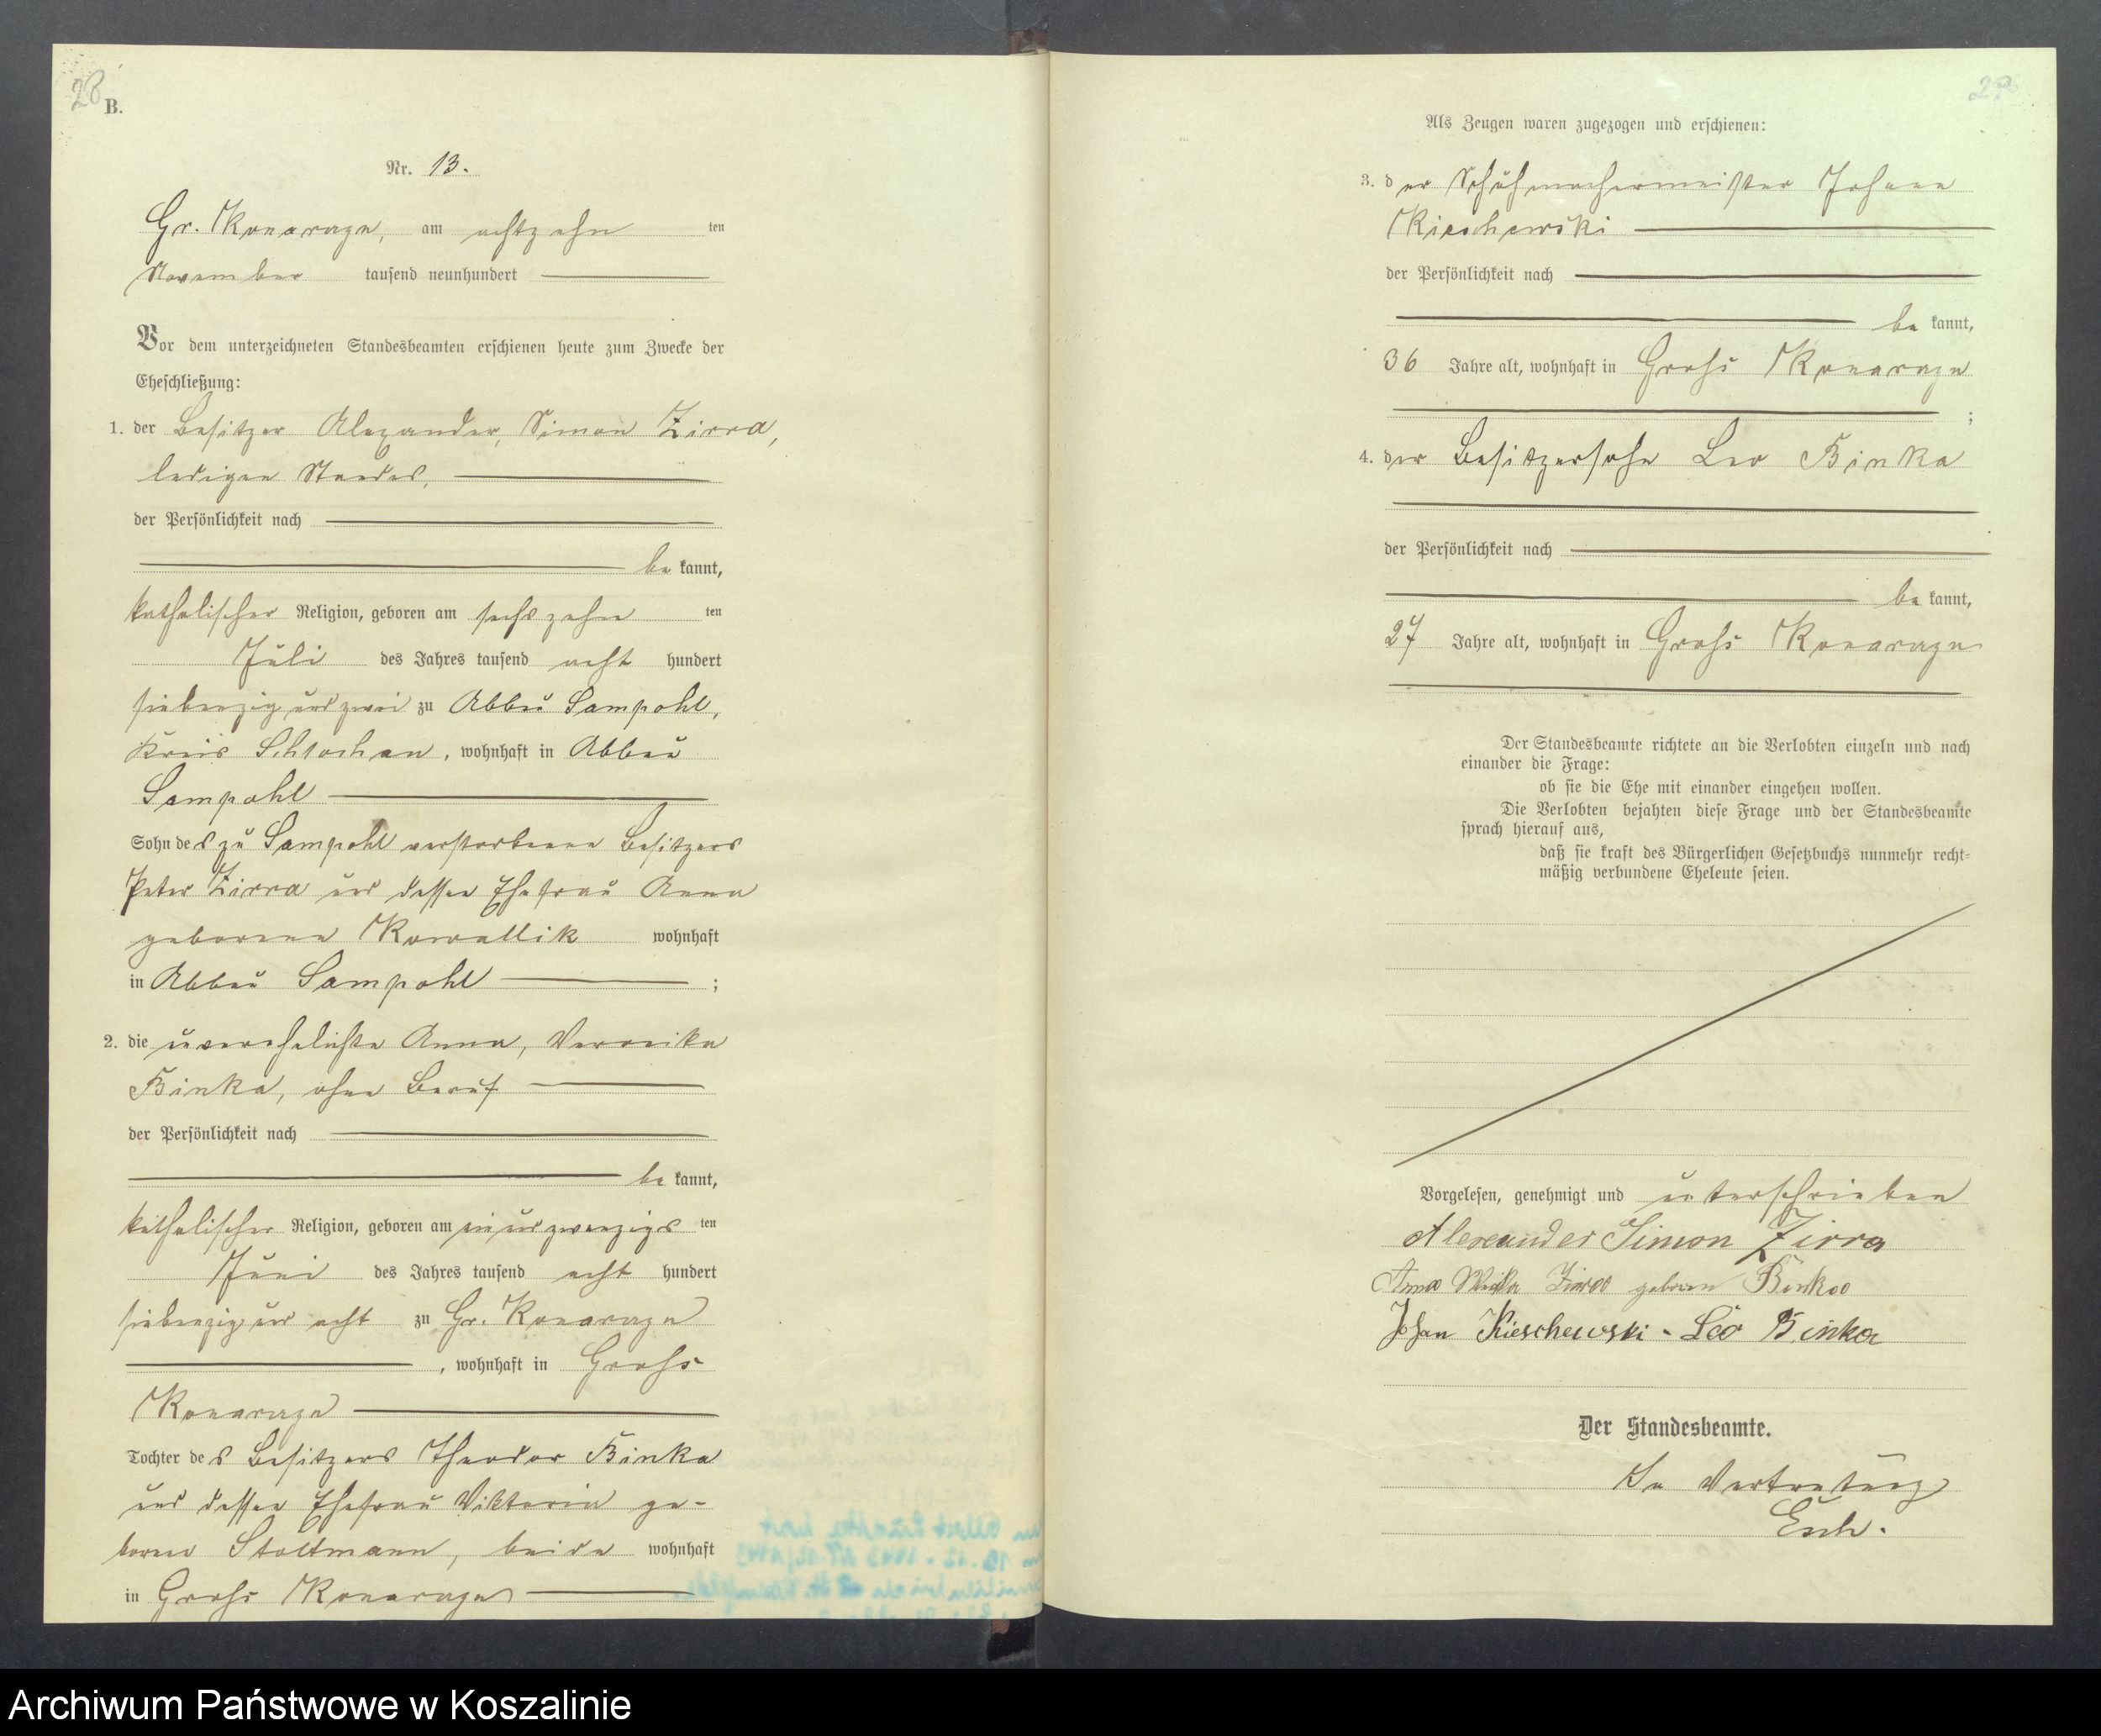 28
B.
Nr. 13.
Gr. Konarzyn, am achtzehn ten
November tausend neunhundert
Vor dem unterzeichneten Standesbeamten erschienen heute zum Zwecke der
Eheschließung:
1. der Besitzer Alexander, Simon Zirra,
ledigen Standes,
der Persönlichkeit nach
be kannt,
katholischer Religion, geboren am sechszehn ten
Juli des Jahres tausend acht hundert
siebenzig und zwei zu Abbau Sampohl,
Kreis Schlochau, wohnhaft in Abbau
Sampohl
Sohn des zu Sampohl verstorbenen Besitzers
Peter Zirra und dessen Ehefrau Anna
geborene Kowallik wohnhaft
in Abbau Sampohl ;
2. die unverehelichte Anna, Veronika
Binka, ohne Beruf
der Persönlichkeit nach
be kannt,
katholischer Religion, geboren am einundzwanzigs ten
Juni des Jahres tausend acht hundert
siebenzig und acht zu Gr. Konarzyn
, wohnhaft in Groß
Konarzyn
Tochter des Besitzers Theodor Binka
und dessen Ehefrau Viktoria ge-
borene Stoltmann, beide wohnhaft
in Groß Konarzyn
Als Zeugen waren zugezogen und erschienen:
3. der Schuhmachermeister Johann
Kieschewski
der Persönlichkeit nach
be kannt,
36 Jahre alt, wohnhaft in Groß Konarzyn
;
4. der Besitzersohn Leo Binka
der Persönlichkeit nach
be kannt,
27 Jahre alt, wohnhaft in Groß Konarzyn
Der Standesbeamte richtete an die Verlobten einzeln und nach
einander die Frage:
ob sie die Ehe mit einander eingehen wollen.
Die Verlobten bejahten diese Frage und der Standesbeamte
sprach hierauf aus,
daß sie kraft des Bürgerlichen Gesetzbuchs nunmehr recht-
mäßig verbundene Eheleute seien.
Vorgelesen, genehmigt und unterschrieben
Alexander Simon Zirra
Anna Zirra geboren Binka
Johan Kieschewski - Leo Binka
Der Standesbeamte.
In Vertretung
Esch.
Archiwum Państwowe w Koszalinie